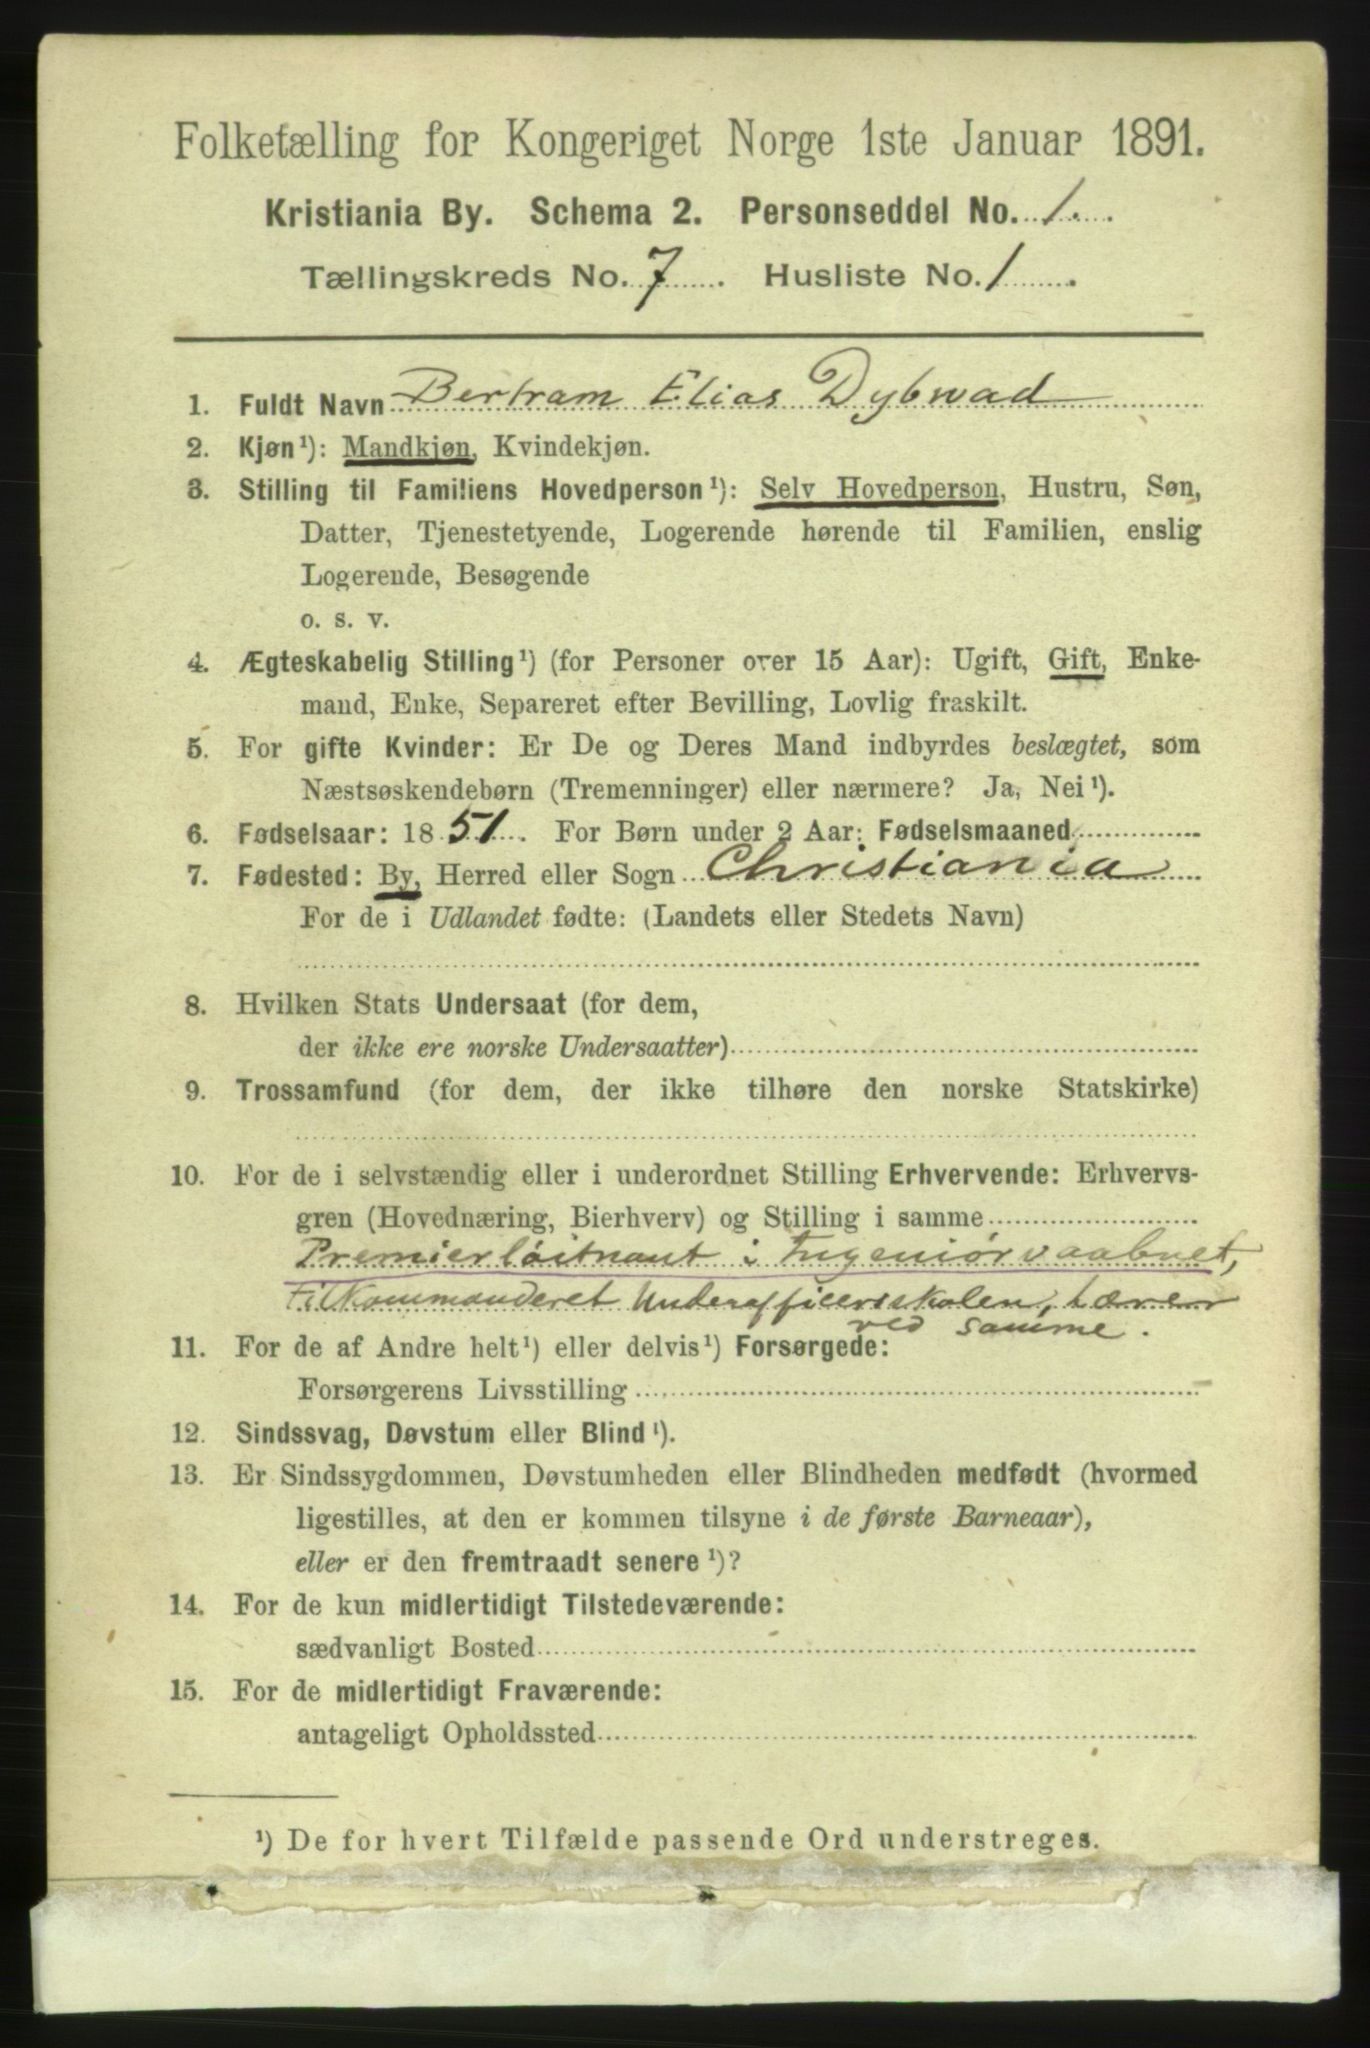 Folketælling for Kongeriget Norge 1ste Januar 1891.
Kristiania By. Schema 2. Personseddel No. 1.
Tællingskreds No. 7. Husliste No. 1.
1. Fuldt Navn Bertram Elias Dybwad
2. Kjøn¹): Mandkjøn, Kvindekjøn.
3. Stilling til Familiens Hovedperson¹): Selv Hovedperson, Hustru, Søn,
Datter, Tjenestetyende, Logerende hørende til Familien, enslig
Logerende, Besøgende
o. s. v.
4. Ægteskabelig Stilling¹) (for Personer over 15 Aar): Ugift, Gift, Enke-
mand, Enke, Separeret efter Bevilling, Lovlig fraskilt.
5. For gifte Kvinder: Er De og Deres Mand indbyrdes beslægtet, som
Næstsøskendebørn (Tremenninger) eller nærmere? Ja, Nei¹).
6. Fødselsaar: 1851. For Børn under 2 Aar: Fødselsmaaned
7. Fødested: By, Herred eller Sogn Christiania
For de i Udlandet fødte: (Landets eller Stedets Navn)
8. Hvilken Stats Undersaat (for dem,
der ikke ere norske Undersaatter)
9. Trossamfund (for dem, der ikke tilhøre den norske Statskirke)
10. For de i selvstændig eller i underordnet Stilling Erhvervende: Erhvervs-
gren (Hovednæring, Bierhverv) og Stilling i samme
Premierløitnant i Ingeniørvaabnet,
tilkommanderet Underofficersskolen, Lærer
ved samme.
11. For de af Andre helt¹) eller delvis¹) Forsørgede:
Forsørgerens Livsstilling
12. Sindssvag, Døvstum eller Blind¹).
13. Er Sindssygdommen, Døvstumheden eller Blindheden medfødt (hvormed
ligestilles, at den er kommen tilsyne i de første Barneaar),
eller er den fremtraadt senere¹)?
14. For de kun midlertidigt Tilstedeværende:
sædvanligt Bosted
15. For de midlertidigt Fraværende:
antageligt Opholdssted
¹) De for hvert Tilfælde passende Ord understreges.